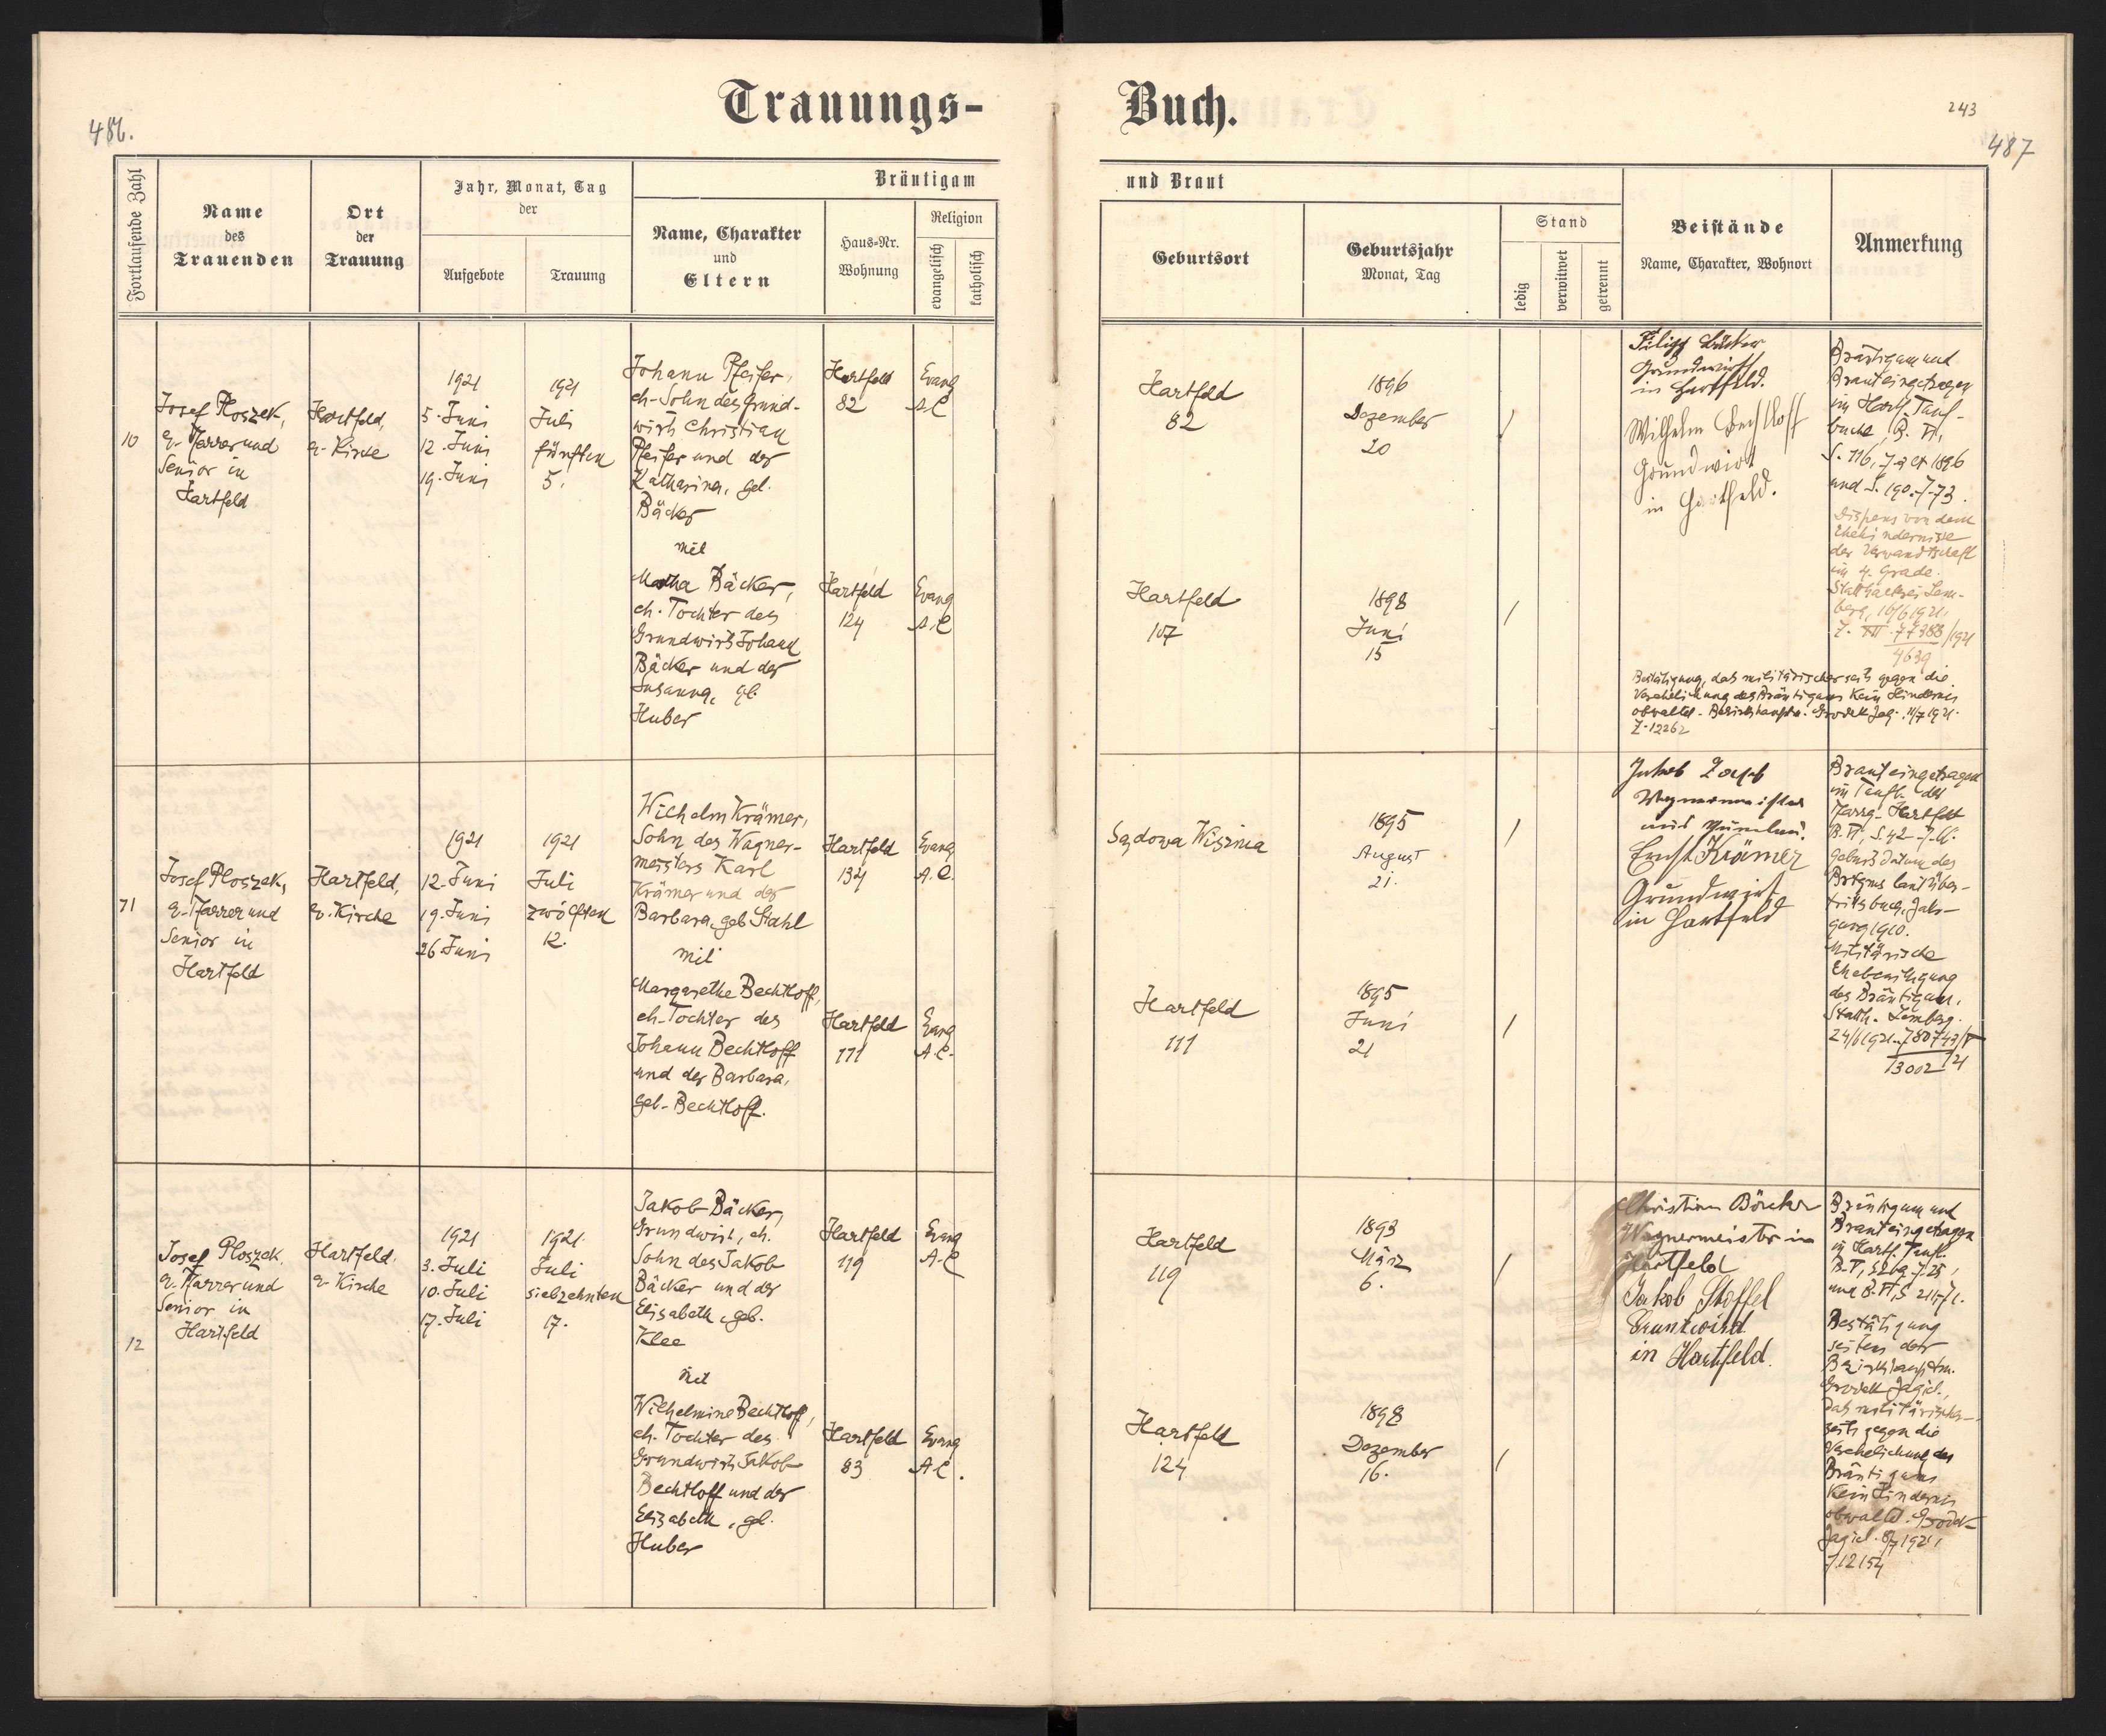 Trauungs-
Buch.
486.
243
487
Fortlaufende Zahl
Name
des
Trauenden
Ort
der
Trauung
Jahr, Monat, Tag
der
Aufgebote
Trauung
Bräutigam
Name, Charakter
und
Eltern
Haus-Nr.
Wohnung
Religion
evangelisch
katholisch
und Braut
Geburtsort
Geburtsjahr
Monat, Tag
Stand
ledig
verwitwet
getrennt
Beistände
Name, Charakter, Wohnort
Anmerkung
10
Josef Ploszek,
e. Pfarrer und
Senior in
Hartfeld
Hartfeld,
e. Kirche
1921
5. Juni
12. Juni
19. Juni
1921
Juli
fünften
5.
Johann Pfeifer,
eh. Sohn des Grund-
wirts Christian
Pfeifer und der
Katharina, geb.
Bäcker
mit
Bäcker,
eh. Tochter des
Grundwirts Johann
Bäcker und der
Susanna, gb.
Huber
Hartfeld
82
Evang
A.C
Hartfeld
124
Evang
A.C
Hartfeld
82
1896
Dezember
20
/
Hartfeld
107
1898
Juni
15
/
Filipp Bäcker
Grundwirt
in Hartfeld.
Wilhelm Bechtloff
Grundwirt
in Hartfeld.
Bräutigam und
Braut eingetragen
im Hartf. Tauf-
buche, B. VI,
S. 116, 1896
und S. 190. Z. 73.
Dispens von dem
Ehehindernisse
der Verwandtschaft
im 4. Grade.
Statthalterei Lem-
berg, 16/6 1921,
Z. VII 77388/1921
4639
Bestätigung, daß militärischerseits gegen die
Verehelichung des Bräutigams kein Hindernis
obwaltet. Bezirkshauptm. Grodek Jag. 11/7 1921.
Z. 12262
11
Josef Ploszek,
e. Pfarrer und
Senior in
Hartfeld
Hartfeld,
e. Kirche
1921
12. Juni
19. Juni
26. Juni
1921
Juli
zwölften
12.
Wilhelm Krämer,
Sohn des Wagner-
meisters Karl
Krämer und der
Barbara, geb. Stahl
mit
Margarethe Bechtloff,
eh. Tochter des
Johann Bechtloff
und der Barbara,
geb. Bechtloff.
Hartfeld
134
Evang
A.C.
Hartfeld
111
Evang
A.C.
Sądowa Wisznia
1895
August
21.
/
Hartfeld
111
1895
Juni
21
/
Jakob
Wagnermeister
Ernst Krämer
Grundwirt
in Hartfeld
Braut eingetragen
im Taufb. der
Pfarrg. Hartfeld
B. VI. S. 42
Geburtsdatum des
Brtgms laut Über-
trittsbuch, Jahr-
gang 1910.
Militärische
Ehebewilligung
des Bräutigam.
Statth. Lemberg.
24/6 1921. Z. 80743/V
13002 /21
12
Josef Ploszek,
e. Pfarrer und
Senior in
Hartfeld
Hartfeld,
e. Kirche
1921
3. Juli
10. Juli
17. Juli
1921
Juli
siebzehnten
17.
Jakob Bäcker,
Grundwirt, eh.
Sohn des Jakob
Bäcker und der
Elisabeth, geb.
Klee
mit
Wilhelmine Bechtloff,
eh. Tochter des
Grundwirts Jakob
Bechtloff und der
Elisabeth, gb.
Huber
Hartfeld
119
Evang
A.C
Hartfeld
83
Evang
A.C.
Hartfeld
119
1893
März
6.
/
Hartfeld
124
1898
Dezember
16.
/
Christian Bäcker
Wagnermeister in
Hartfeld
Jakob Stoffel
Grundwird
in Hartfeld.
Bräutigam und
Braut eingetragen
in Hartf. Taufb.
und B. VI, S. 211
Bestätigung
seitens der
Bezirkhauptm.
Grodek Jagiel.,
daß militärischer-
seits gegen die
Verehelichung des
Bräutigams
kein Hindernis
obwaltet. Grodek
Jagiel. 8/7 1921,
Z. 12154